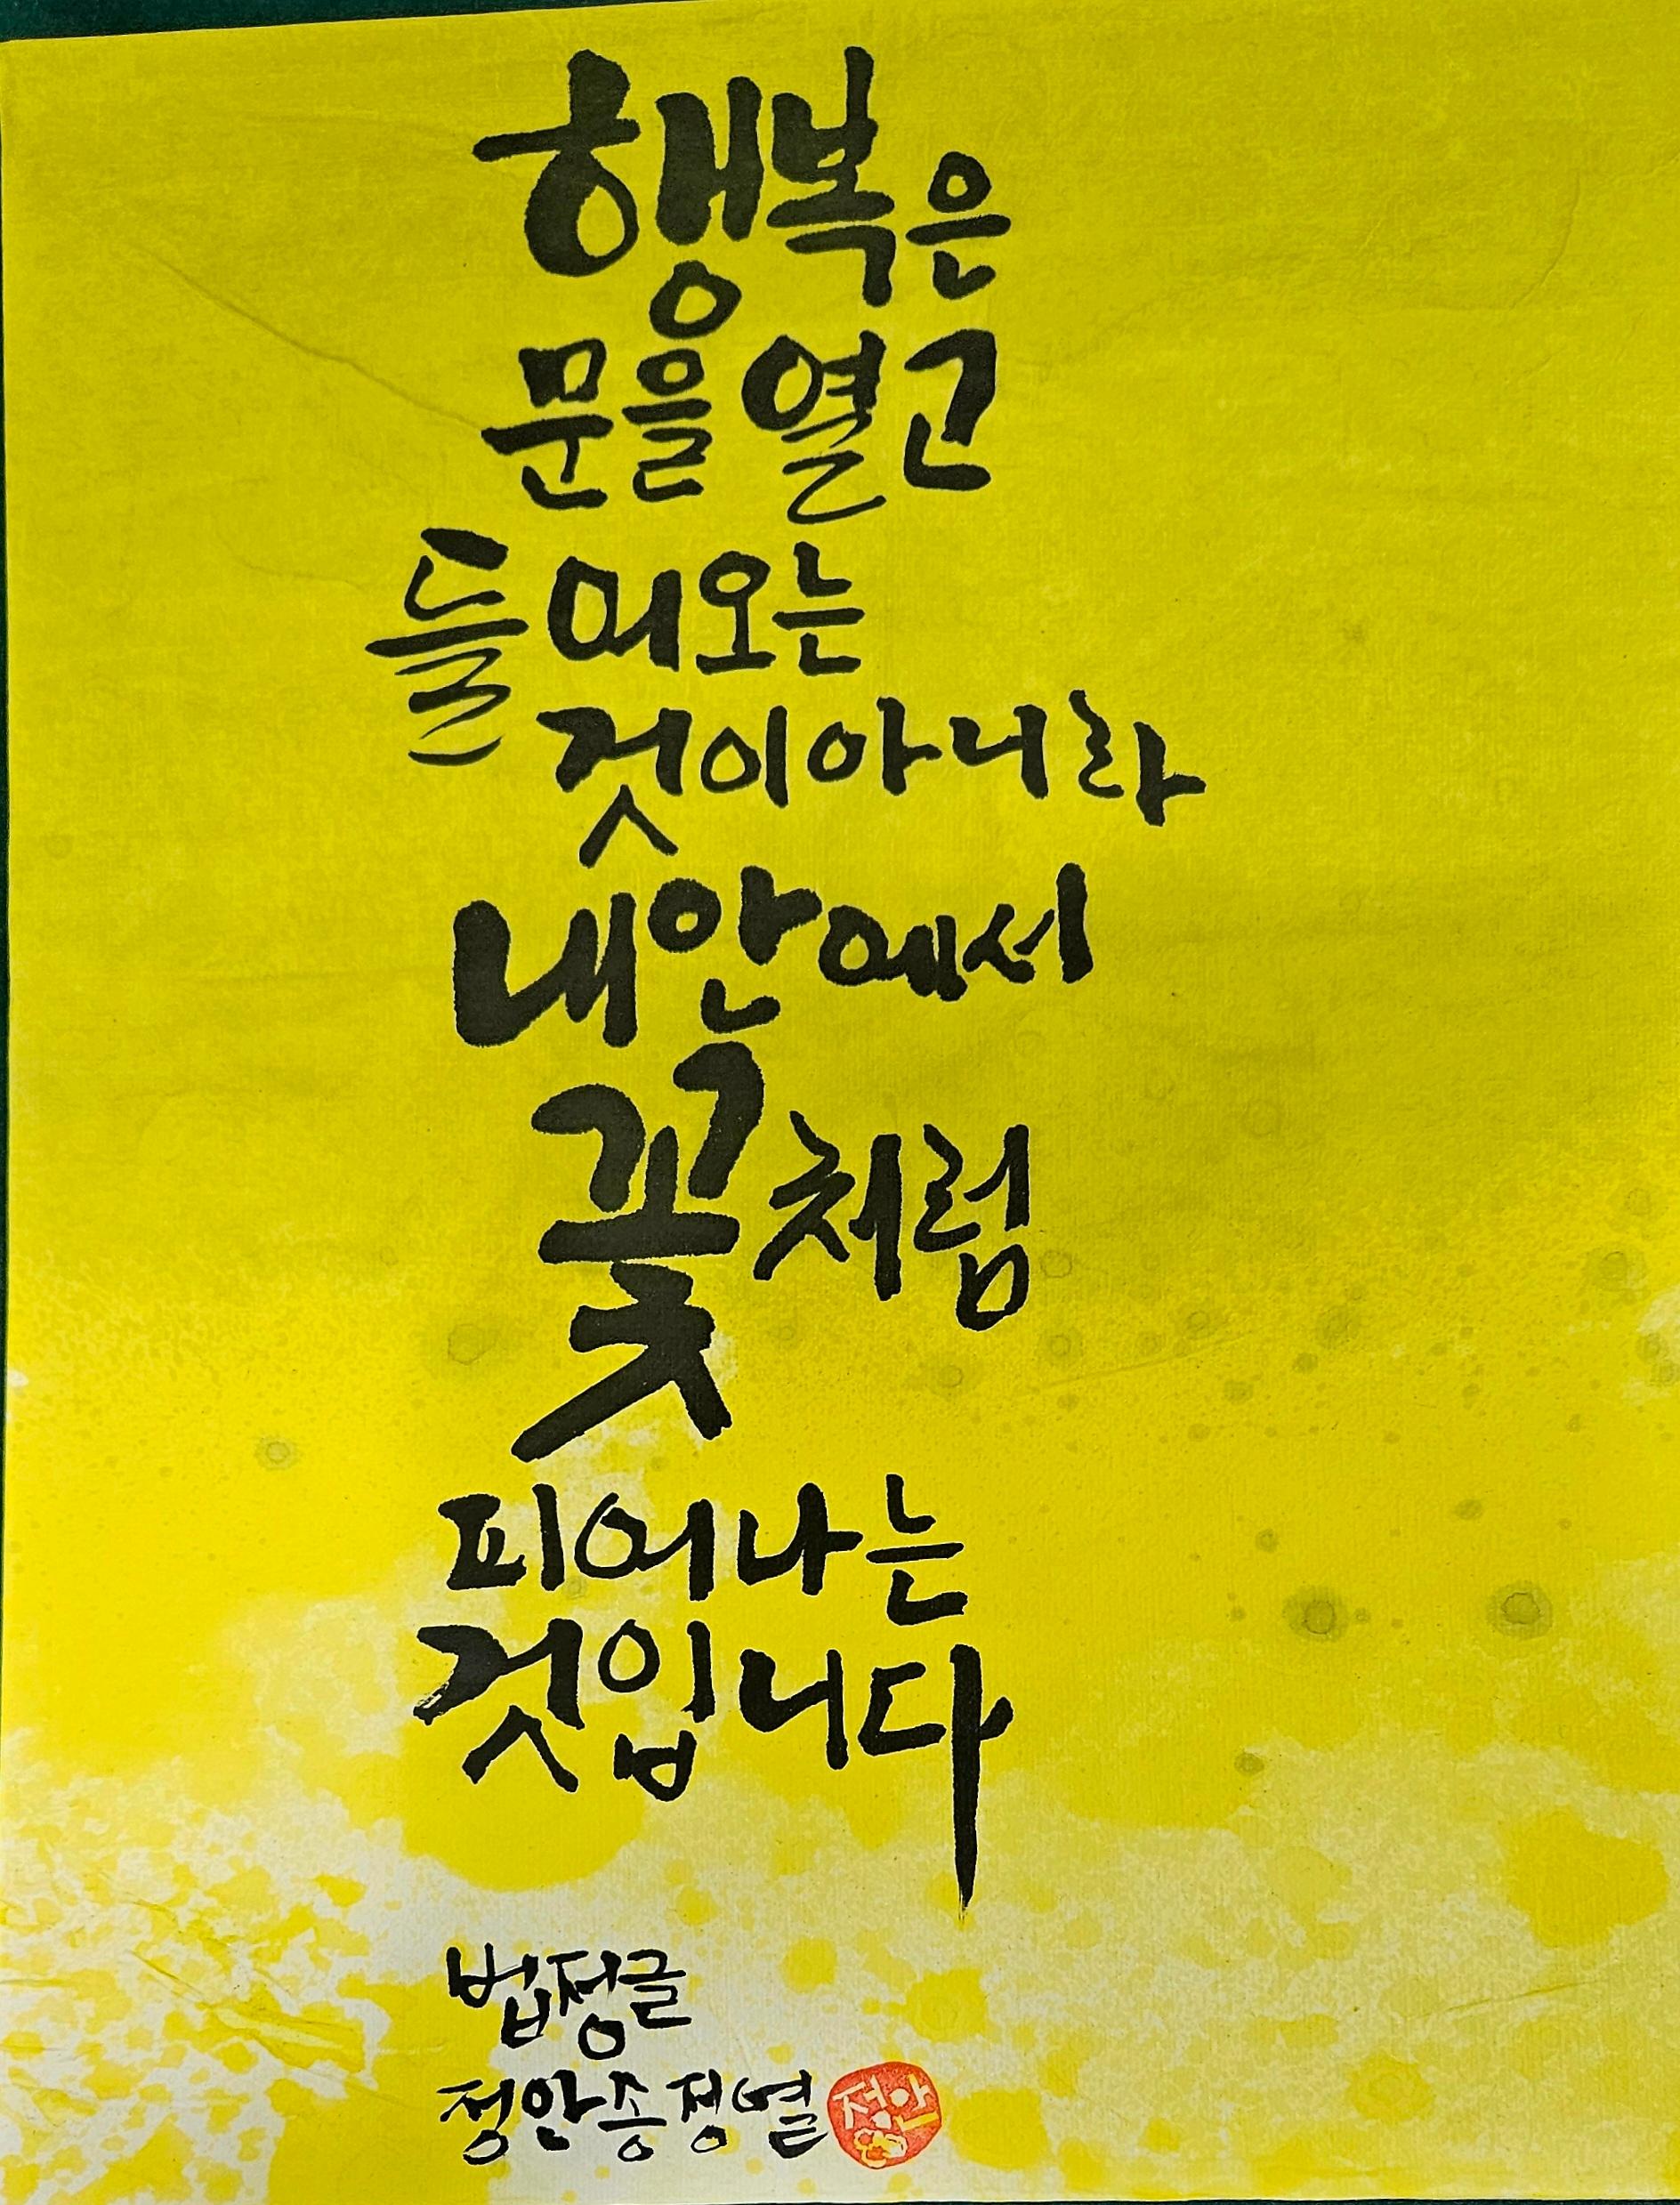 행복은
문을 열고
들어오는
것이아니라
내안에서
꽃처럼
피어나는
것입니다
법정글
정안송정열
정안